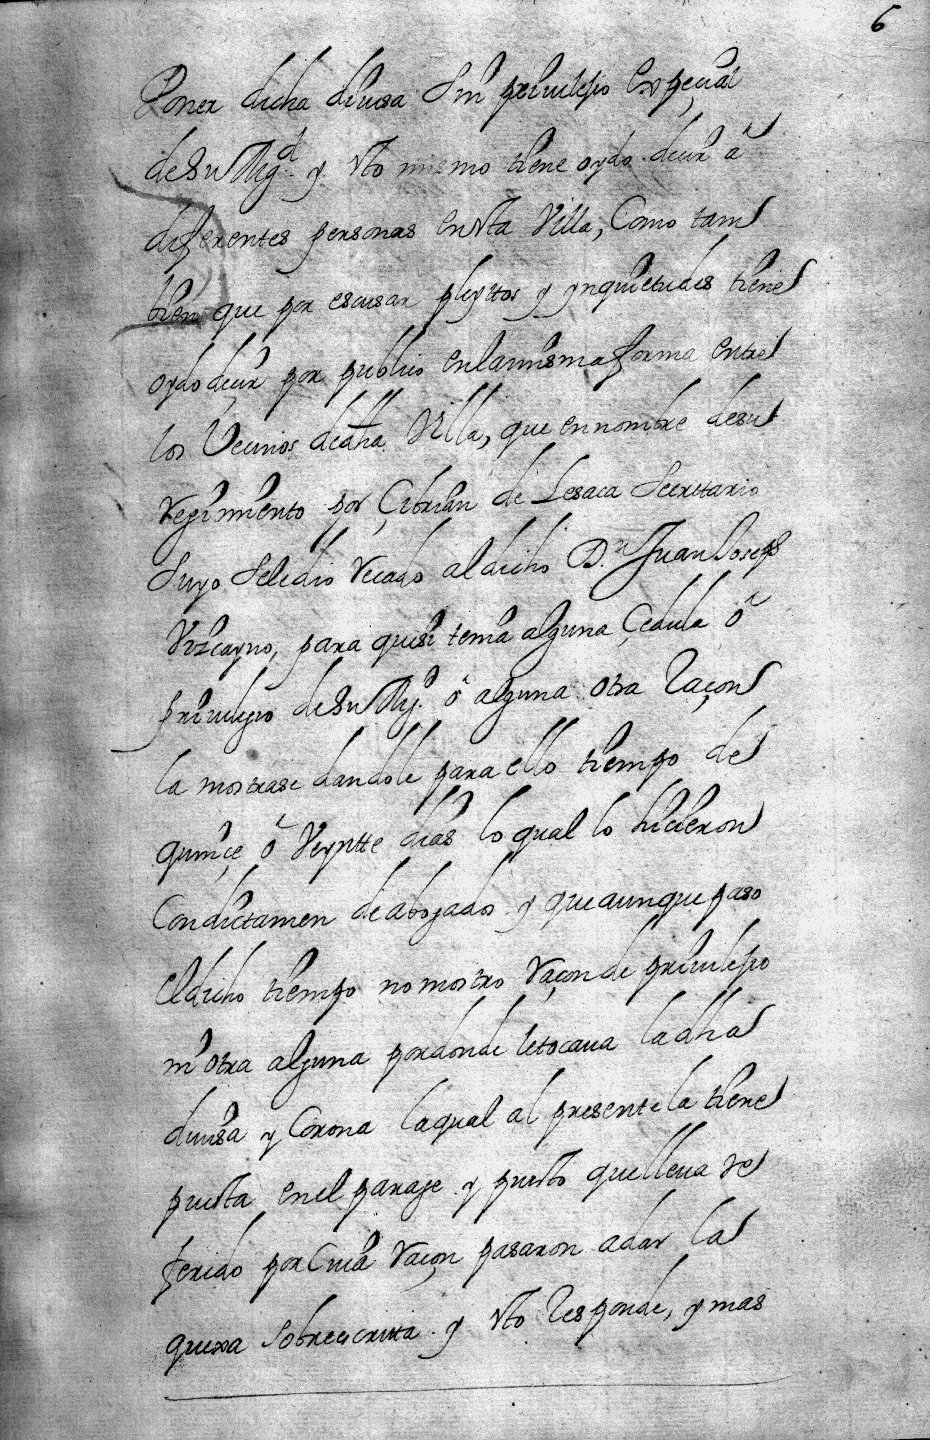 6
Poner dicha diuisa Sin priuilejio Expeçial
de Su Mgd. y Vto mismo tiene oydo decir â
diferentes personas en Vta Villa, Como tam
bien que por escusar pleyttos y ynquietudes tiene
oydo decir por publico en la misma forma entre
los Vecinos de dha Villa, que en nombre de su
Regimiento por Çibrian de Lesaca Secretario
Suyo Se le dio Recado al dicho Dn. Juan Joseph
Vizcayno, para que si tenia alguna Çedula ô
priuilejio de Su Mgd. ô alguna otra Raçon
la mostrase dandole para ello tiempo de
quinçe ô Veyntte dias lo qual lo hicieron
Con dictamen de abogados y que aunque paso
El dicho tiempo no mostro Raçon de priuilejio
ni otra alguna por donde le tocaua la dha
diuisa y Corona la qual al presente la tiene
puesta en el paraje y puesto que lleua re
ferido por Cuia Raçon pasaron a dar la
quexa Sobre escritta y Vto Responde, y mas